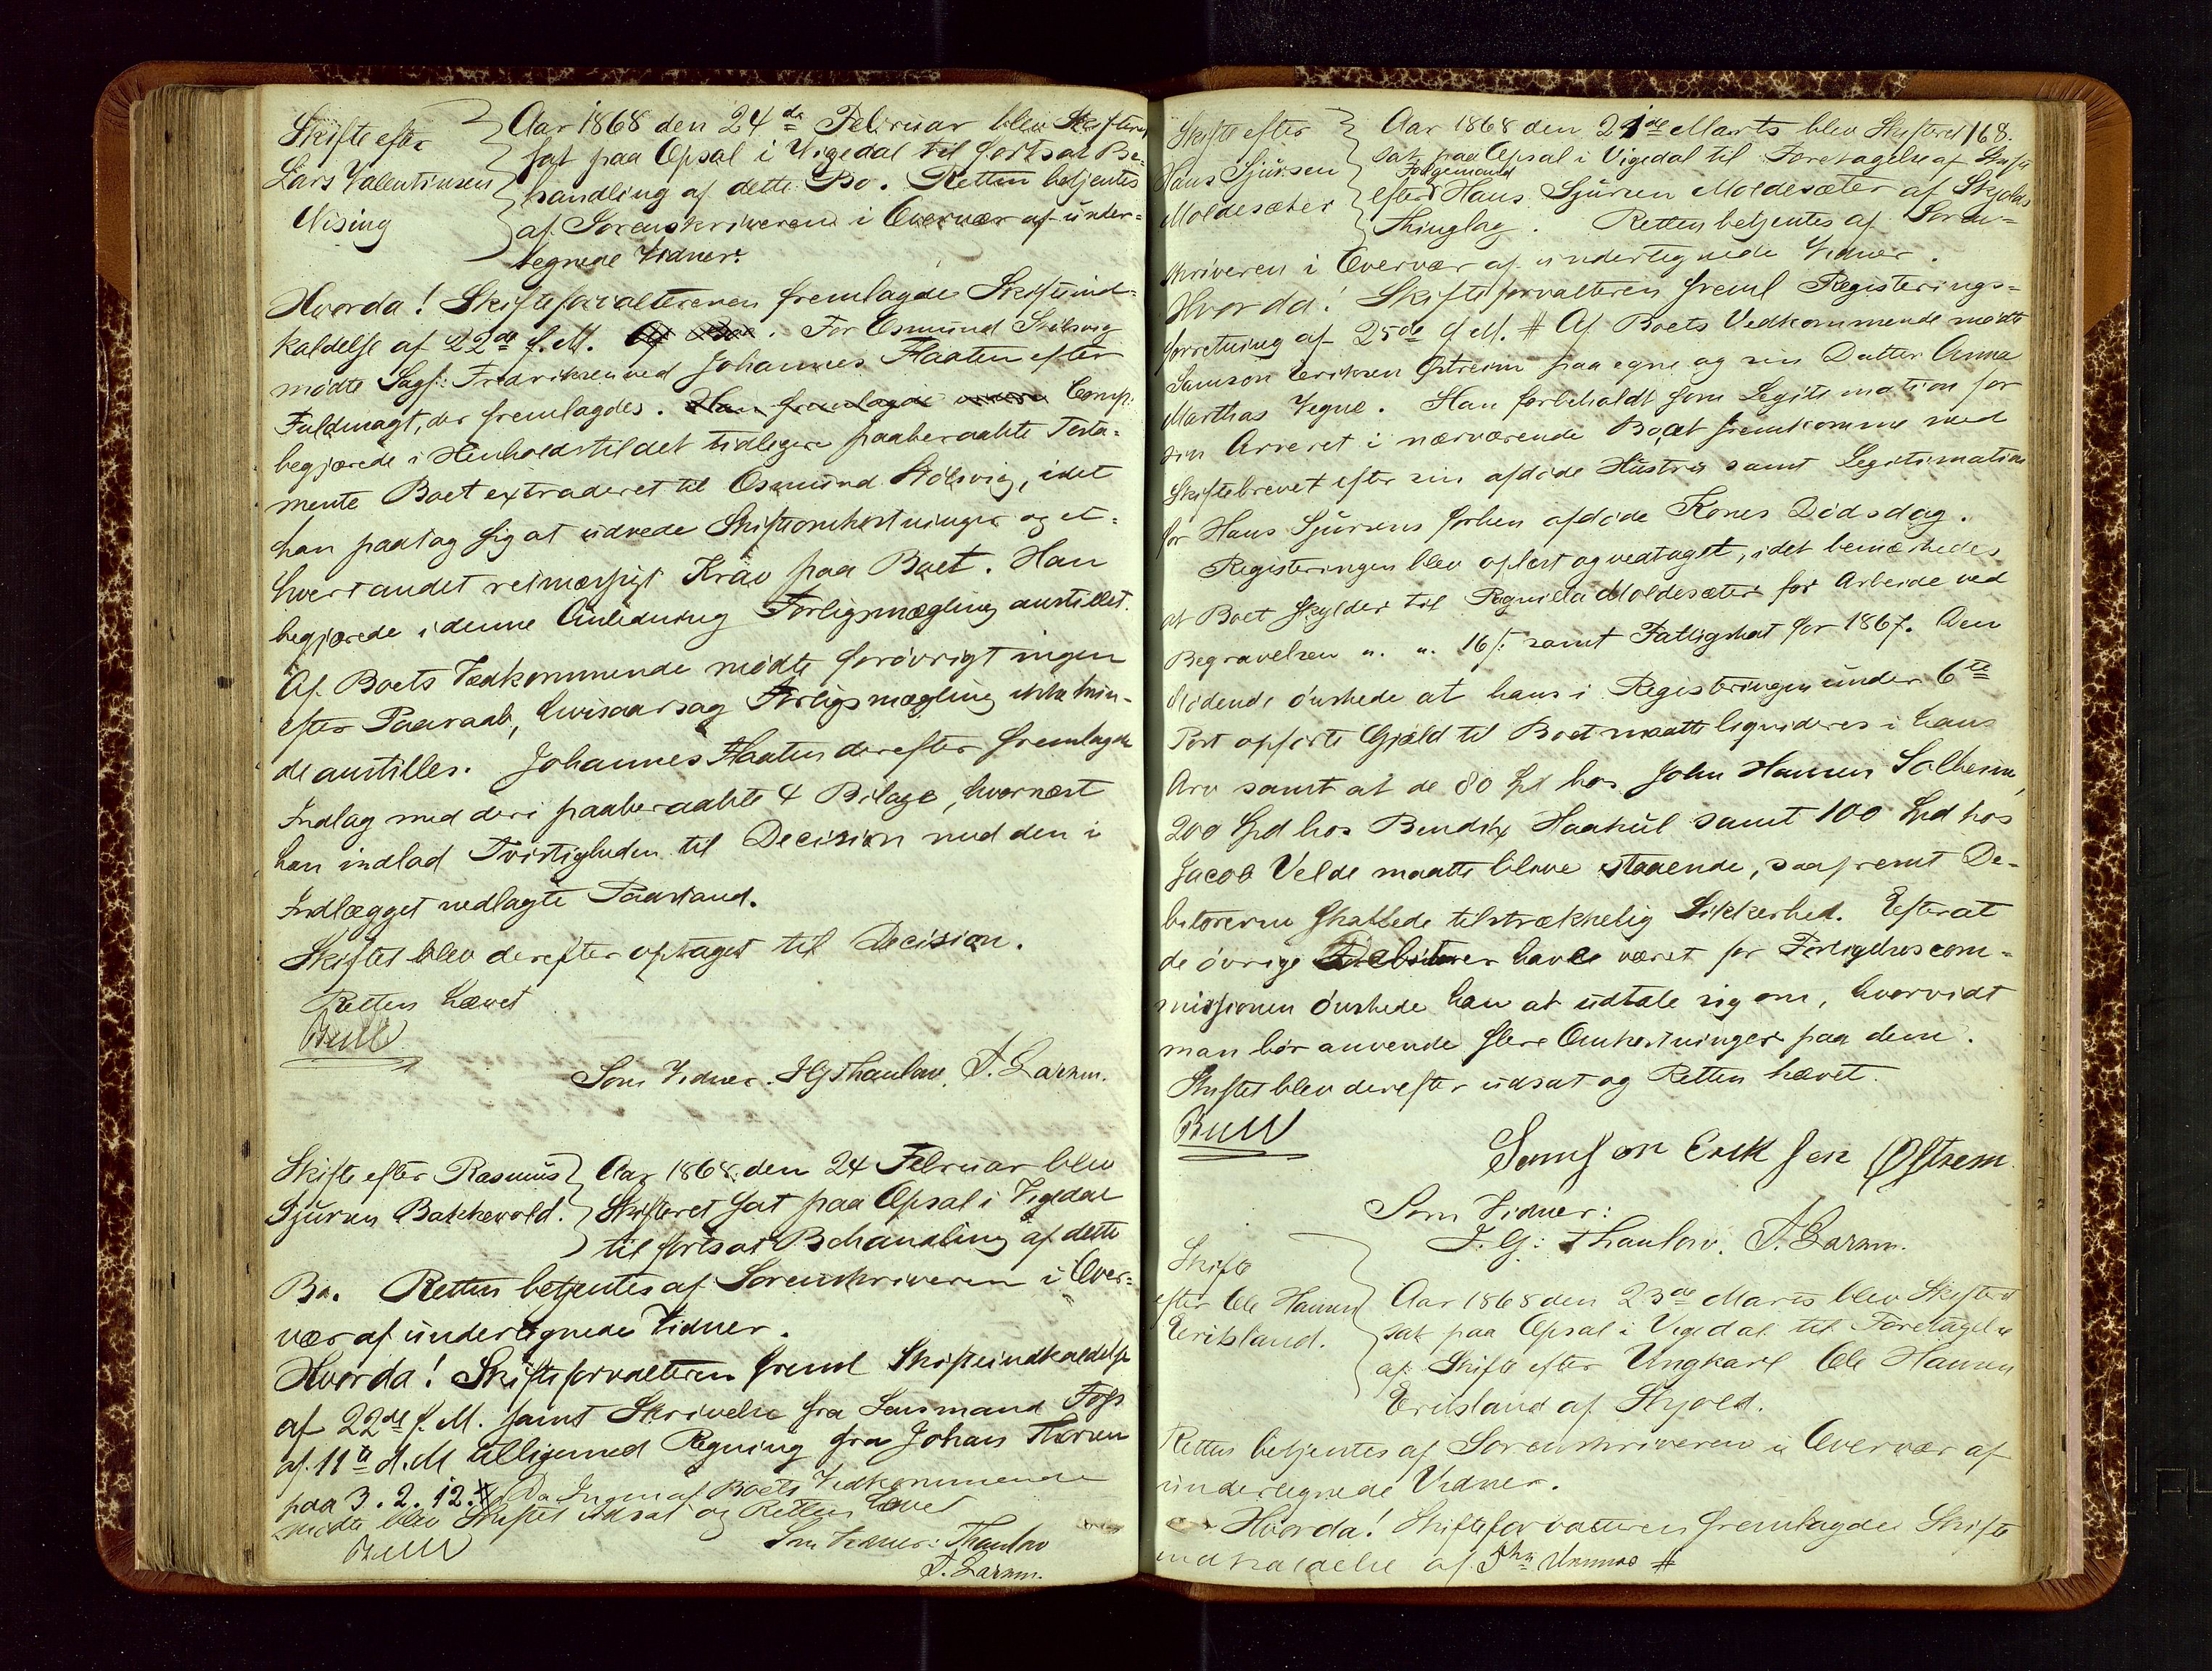 Skifte efter
Lars Valentinsen
Nising
Aar 1868 den 24de Februar blev Skifteret
sat paa Opsal i Vigedal til fortsat Be-
handling af dette Bo. Retten betjentes
af Sorenskriveren i Overvær af under-
tegnede Vidner.
Hvorda! Skifteforvalteren fremlagde Skifteind-
kaldelse af 22de f. M. For Osmund Stølsvig
mødte Sagf: Fredriksen ved Johannes Flaaten efter
Fuldmagt, der fremlagdes. Han fremlagde Comp:
begjærede i Henhold til det tidligere paaberaabte Testa-
mente Boet extraderet til Osmund Stølsvig, idet
han paatog sig at udrede Skifteomkostninger og et-
hvert andet retmæssigt Krav paa Boet. Han
begjærede i denne Anledning Forligsmægling anstillet.
Af Boets Vedkommende mødte forøvrigt ingen
efter Paaraab, hvisaarsag Forligsmægling ikke kun-
de anstilles. Johannes Flaaten derefter fremlagde
Indlag med deri paaberaabte 4 Bilage, hvornæst
han indlod Tvistigheden til Decision med den i
Indlægget nedlagte Paastand.
Skiftet blev derefter optaget til Decision.
Retten hævet
Bull
Som Vidner. J G Thaulow. A. Larsen.
Skifte efter Rasmus
Sjursen Bakkevold.
Aar 1868 den 24 Februar blev
Skifteret sat paa Opsal i Vigedal
til fortsat Behandling af dette
Bo. Retten betjentes af Sorenskriveren i Over-
vær af undertegnede Vidner.
Hvorda! Skifteforvalteren freml Skifteindkaldelse
af 22de f. M. samt Skrivelse fra Lensmand Foss
af 11te d. M tilligemed Regning fra Johan Thorsen
paa 3. 2. 12. # Da Ingen af Boets Vedkommende
mødte blev Skiftet udsat og Retten hævet
Bull
Som Vidner: Thaulow
A. Larsen.
168.
Skifte efter
Hans Sjursen
Moldesæter
Aar 1868 den 21de Marts blev Skifteret
sat paa Opsal i Vigedal til Foretagelse af Skifte
efter Hans Sjursen Moldesæter af Skjolds
Thinglag. Retten betjentes af Soren-
skriveren i Overvær af undertegnede Vidner.
Hvorda! Skifteforvalteren freml Registerings-
forretning af 25de f M. # Af Boets Vedkommende mødte
Samson Eriksen Østreim paa egne og sin Datter Anna
Marthas Vegne. Han forbeholdt som Legitimation for
sin Arveret i nærværende Bo at fremkomme med
Skiftebrevet efter sin afdøde Hustru samt Legitimation
for Hans Sjursens forhen afdøde Kones Dødsdag.
Registeringen blev oplæst og vedtaget, idet bemærkedes
at Boet skylder til Ragnilda Moldesæter for Arbeide ved
Begravelsen " . " . 16 s. samt Fattigskat for 1867. Den
mødende ønskede at hans i Registeringen under 6te
Post opførte Gjæld til Boet maatte liqvideres i hans
Arv samt at de 80 Spd hos John Hansen Solheim,
200 Spd hos Bendix Haakul samt 100 Spd hos
Jacob Velde maatte blive staaende, saafremt De-
bitorerne skaffede tilstrækkelig Sikkerhed. Efterat
de øvrige Debitorer havde været for Forligelsescom-
missionen ønskede han at udtale sig om, hvorvidt
man bør anvende flere Omkostninger paa dem.
Skiftet blev derefter udsat og Retten hævet.
Bull
Samson Erik sen Østrem
Som Vidner:
J. G: Thaulow. A. Larsen.
Skifte
efter Ole Hansen
Eriksland.
Aar 1868 den 23de Marts blev Skifteret
sat paa Opsal i Vigedal til Foretagelse
af Skifte efter Ungkarl Ole Hansen
Eriksland af Skjold.
Retten betjentes af Sorenskriveren i Overvær af
undertegnede Vidner.
Hvorda! Skifteforvalteren fremlagde Skifte
indkaldelse af #